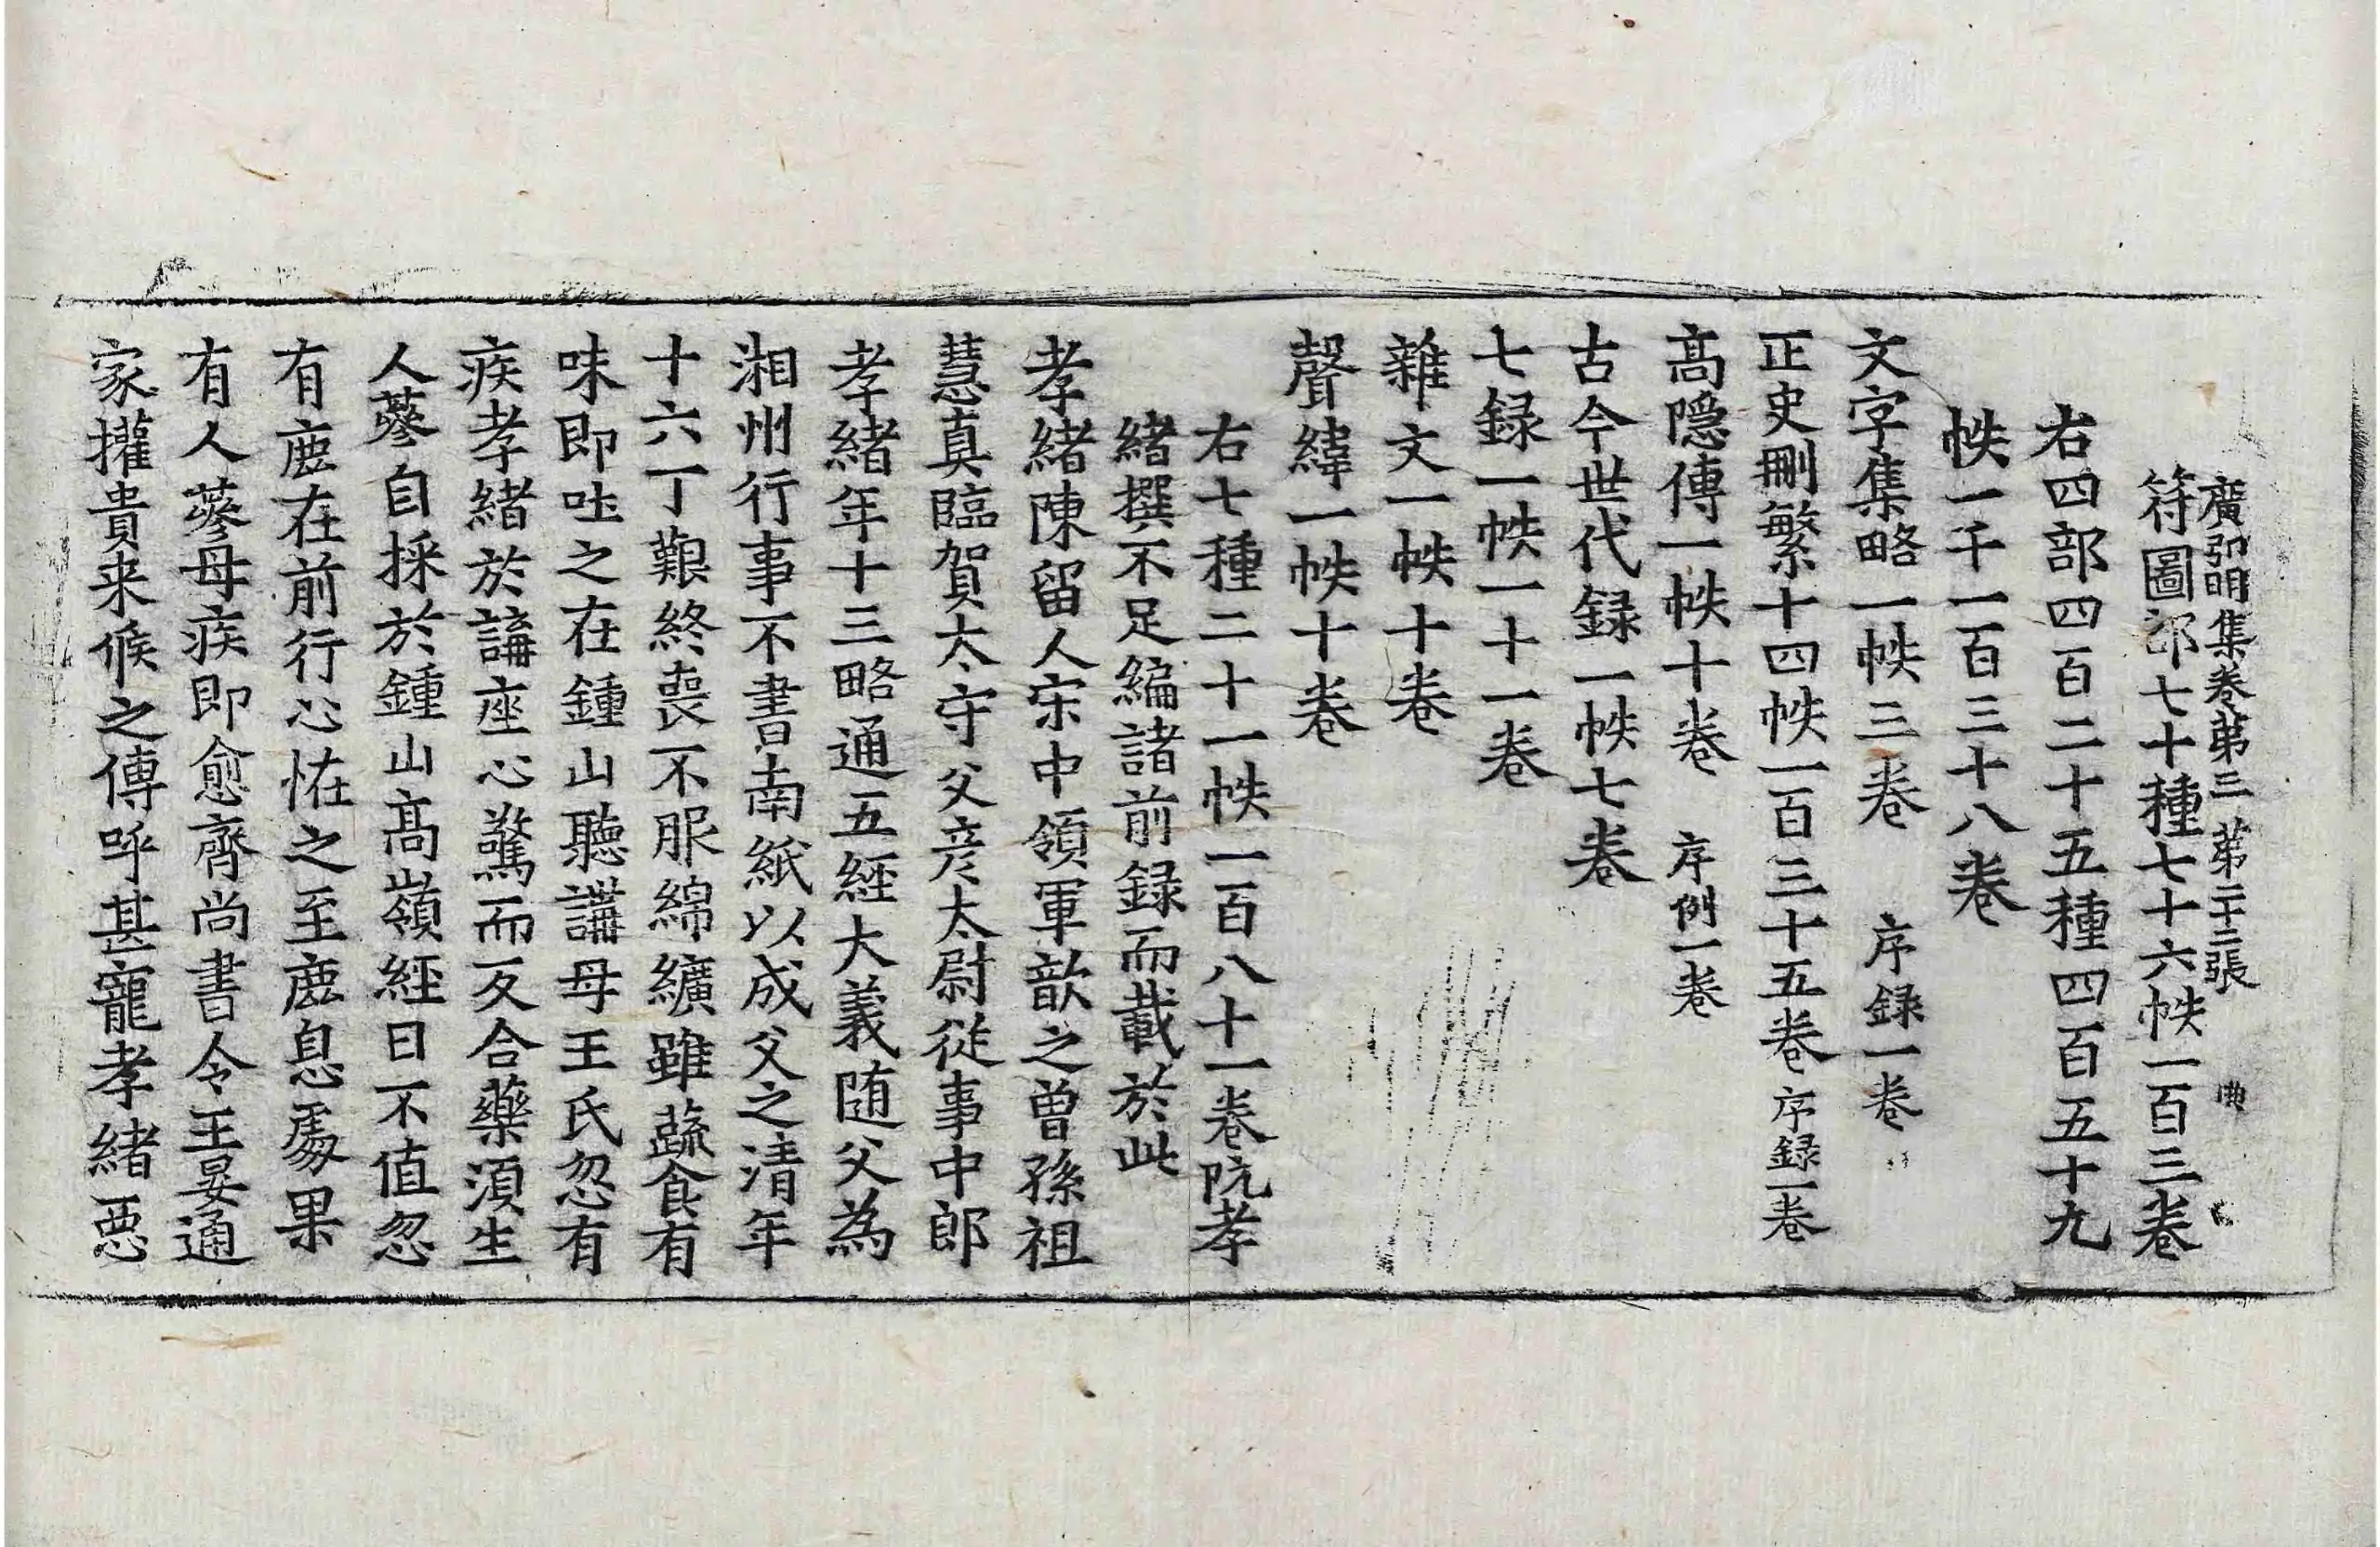 廣弘明集卷第三 第二十二張 典
符圖部七十種七十六帙一百三卷
右四部四百二十五種四百五十九
帙一千一百三十八卷
文字集略一帙三卷 序録一卷
正史刪繁十四帙一百三十五卷序録一卷
髙隱傳一帙十卷 序例一卷
古今世代録一帙七卷
七録一帙一十一卷
雜文一帙十卷
聲緯一帙十卷
右七種二十一帙一百八十一卷阮孝
緒撰不足編諸前録而載於此
孝緒陳留人宋中領軍歆之曾孫祖
慧真臨賀太守父彦太尉從事中郎
孝緒年十三略通五經大義随父為
湘州行事不書南紙以成父之清年
十六丁艱終喪不服綿纊雖蔬食有
味即吐之在鍾山聽講母王氏忽有
疾孝緒於講座心驚而反合藥湏生
人蔘自採於鍾山髙嶺經日不值忽
有鹿在前行心恠之至鹿息處果
有人蔘母疾即愈齊尚書令王晏通
家攉貴来候之傳呼甚寵孝緒惡